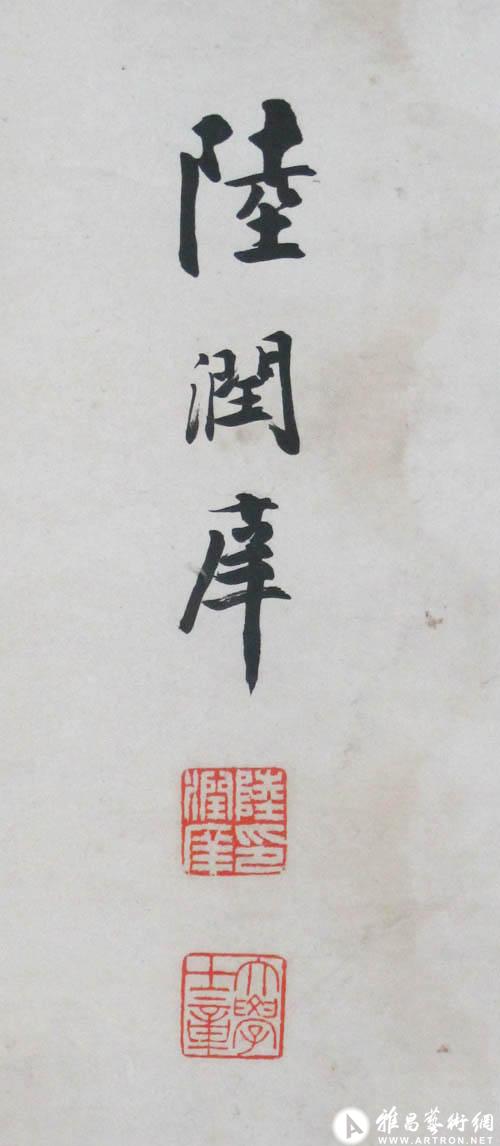 陸潤庠
陸印
潤庠
大學
士章
雅昌藝術網
WWW.ARTRON.NET